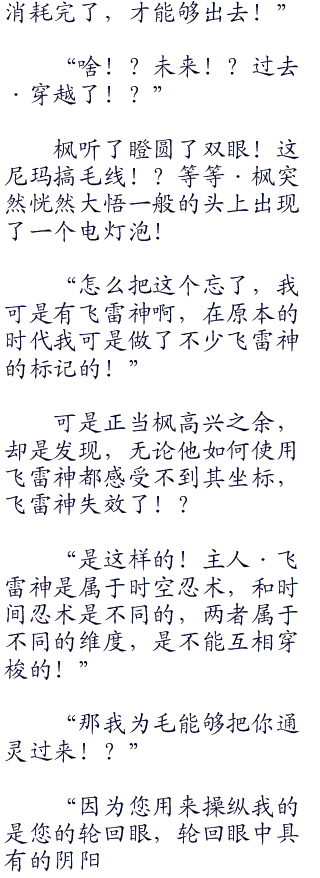 消耗完了，才能够出去！”
“啥！？未来！？过去
·穿越了！？”
枫听了瞪圆了双眼！这
尼玛搞毛线！？等等·枫突
然恍然大悟一般的头上出现
了一个电灯泡！
“怎么把这个忘了，我
可是有飞雷神啊，在原本的
时代我可是做了不少飞雷神
的标记的！”
可是正当枫高兴之余，
却是发现，无论他如何使用
飞雷神都感受不到其坐标，
飞雷神失效了！？
“是这样的！主人·飞
雷神是属于时空忍术，和时
间忍术是不同的，两者属于
不同的维度，是不能互相穿
梭的！”
“那我为毛能够把你通
灵过来！？”
“因为您用来操纵我的
是您的轮回眼，轮回眼中具
有的阴阳